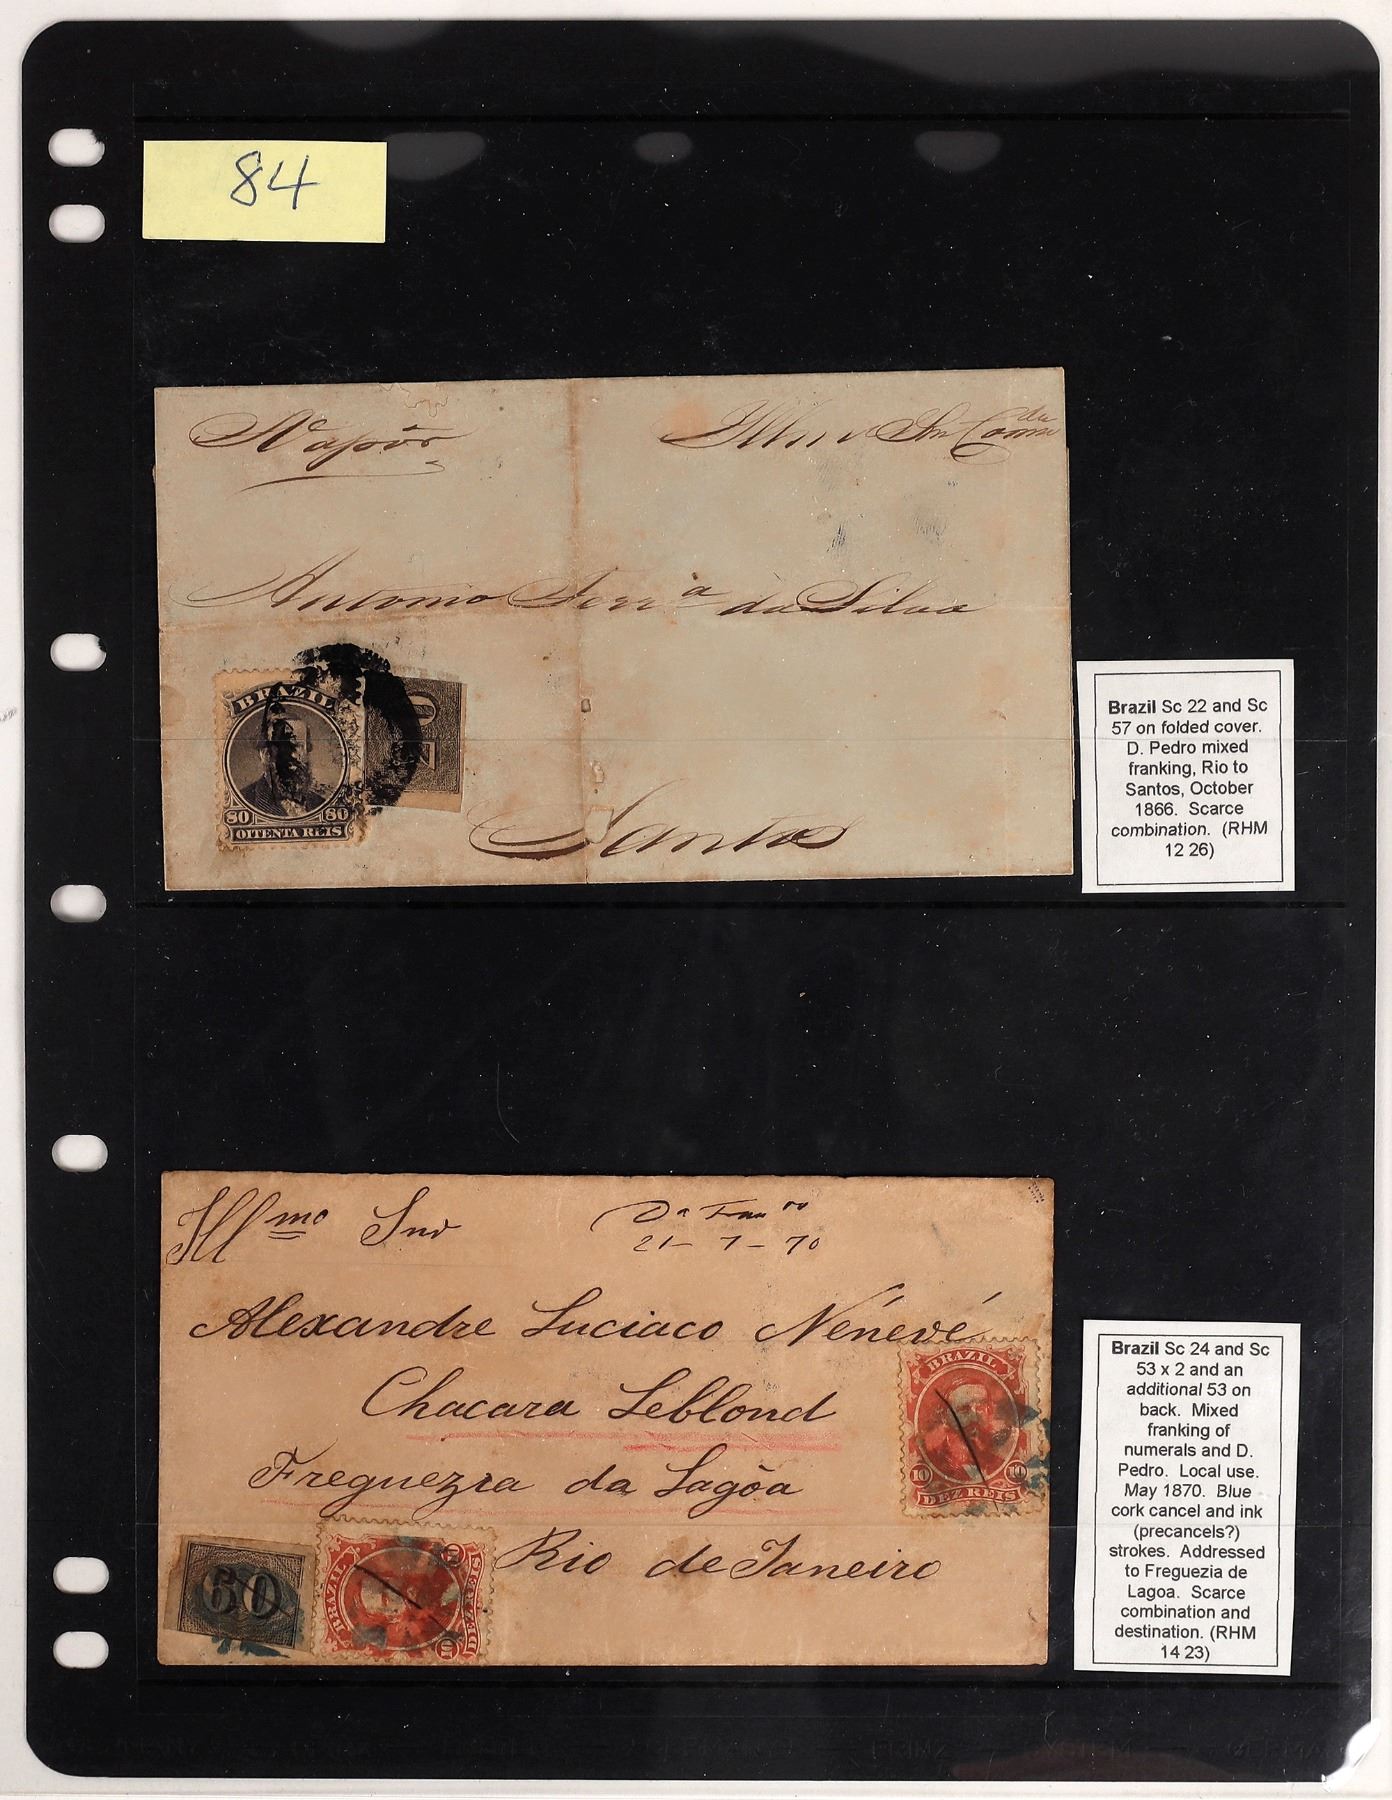 84
Vapôr
Illmo Snr Comdr
Antonio Ferrª da Silva
BRAZIL
80 80
OITENTA REIS
Santos
Brazil Sc 22 and Sc
57 on folded cover.
D. Pedro mixed
franking, Rio to
Santos, October
1866. Scarce
combination. (RHM
12 26)
Illmo Snr
21-7-70
Alexandre Luciaco Nénevé
Chacara Leblond
Freguezia da Lagôa
Rio de Janeiro
BRAZIL
10 10
DEZ REIS
60
BRAZIL
10 10
DEZ REIS
Brazil Sc 24 and Sc
53 x 2 and an
additional 53 on
back. Mixed
franking of
numerals and D.
Pedro. Local use.
May 1870. Blue
cork cancel and ink
(precancels?)
strokes. Addressed
to Freguezia de
Lagoa. Scarce
combination and
destination. (RHM
14 23)